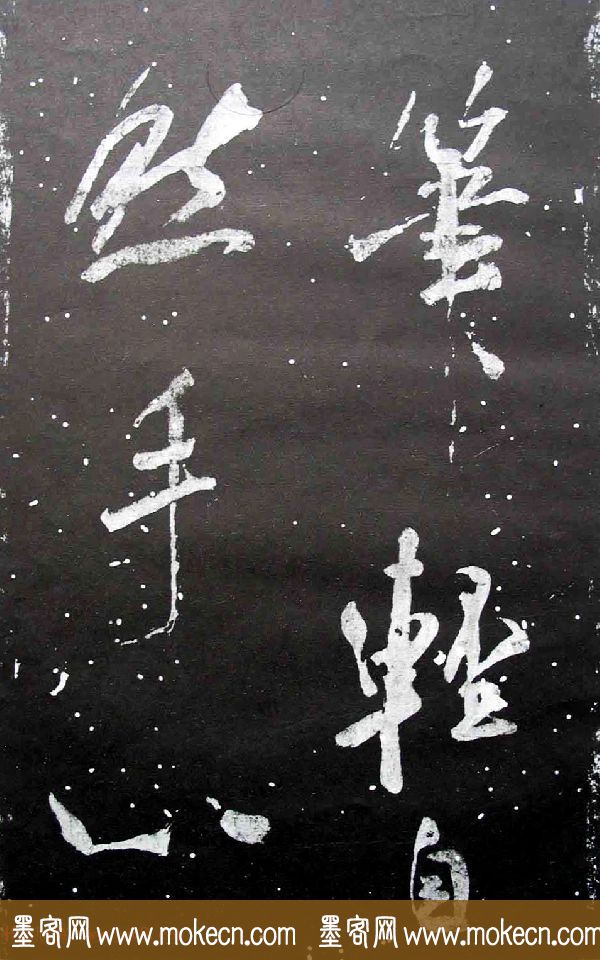 筆輕自
然手心
墨客网 www.mokecn.com 墨客网 www.mokecn.com